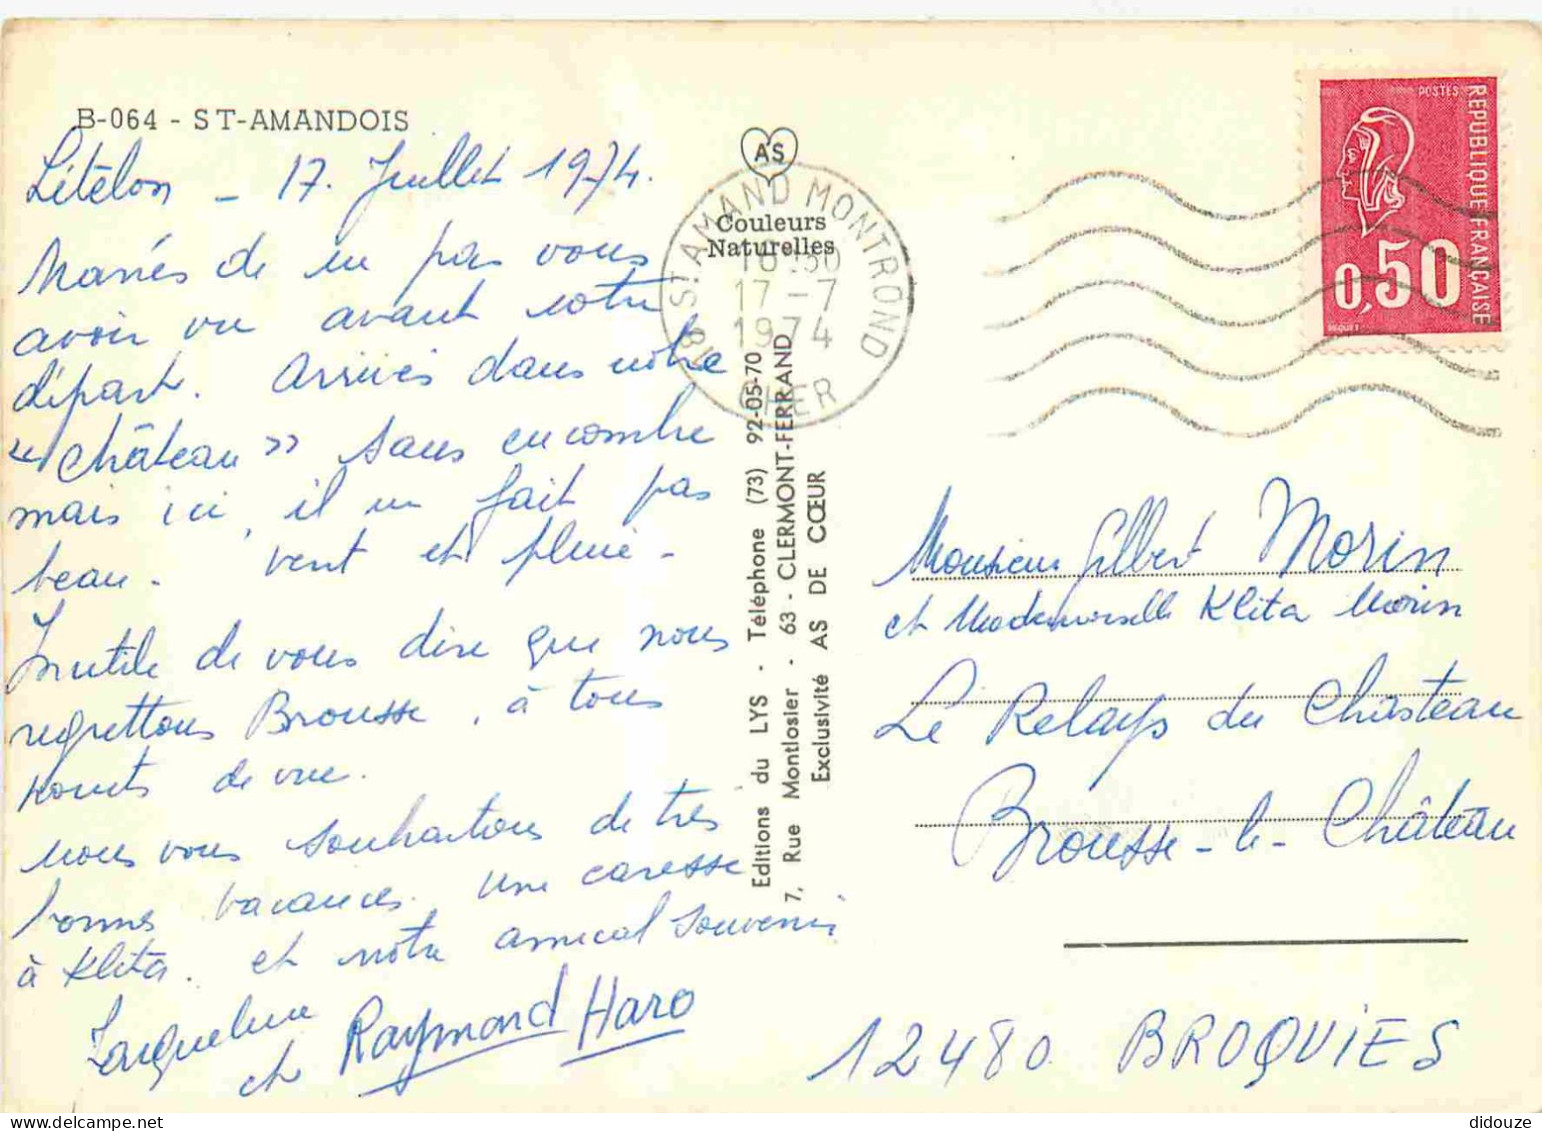 B-064 - ST-AMANDOIS
Létélon - 17. Juillet 1974.
Navrés de ne pas vous
avoir vu avant votre
départ. Arrivés dans notre
« Château » sans encombre
mais ici, il ne fait pas
beau. vent et pluie -
Inutile de vous dire que nous
regrettons Brousse, à tous
points de vue.
Nous vous souhaitons de très
bonnes vacances. Une caresse
à Klita. et notre amical souvenir
Jacqueline
et Raymond Haro
AS
Couleurs
Naturelles
18 ST AMAND MONTROND
16:30
17 -7
1974
CHER
Editions du LYS - Téléphone (73) 92-05-70
7, Rue Montlosier - 63 - CLERMONT-FERRAND
Exclusivité AS DE CŒUR
POSTES
REPUBLIQUE FRANÇAISE
0,50
BEQUET
Monsieur Gilbert Morin
et Mademoiselle Klita Morin
Le Relays du Chasteau
Brousse-le-Château
12480 BROQUIES
didouze